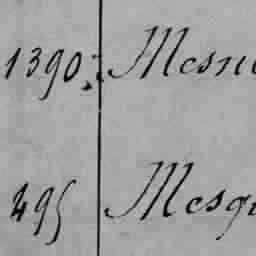 1390. Mesni
495 Mesqu